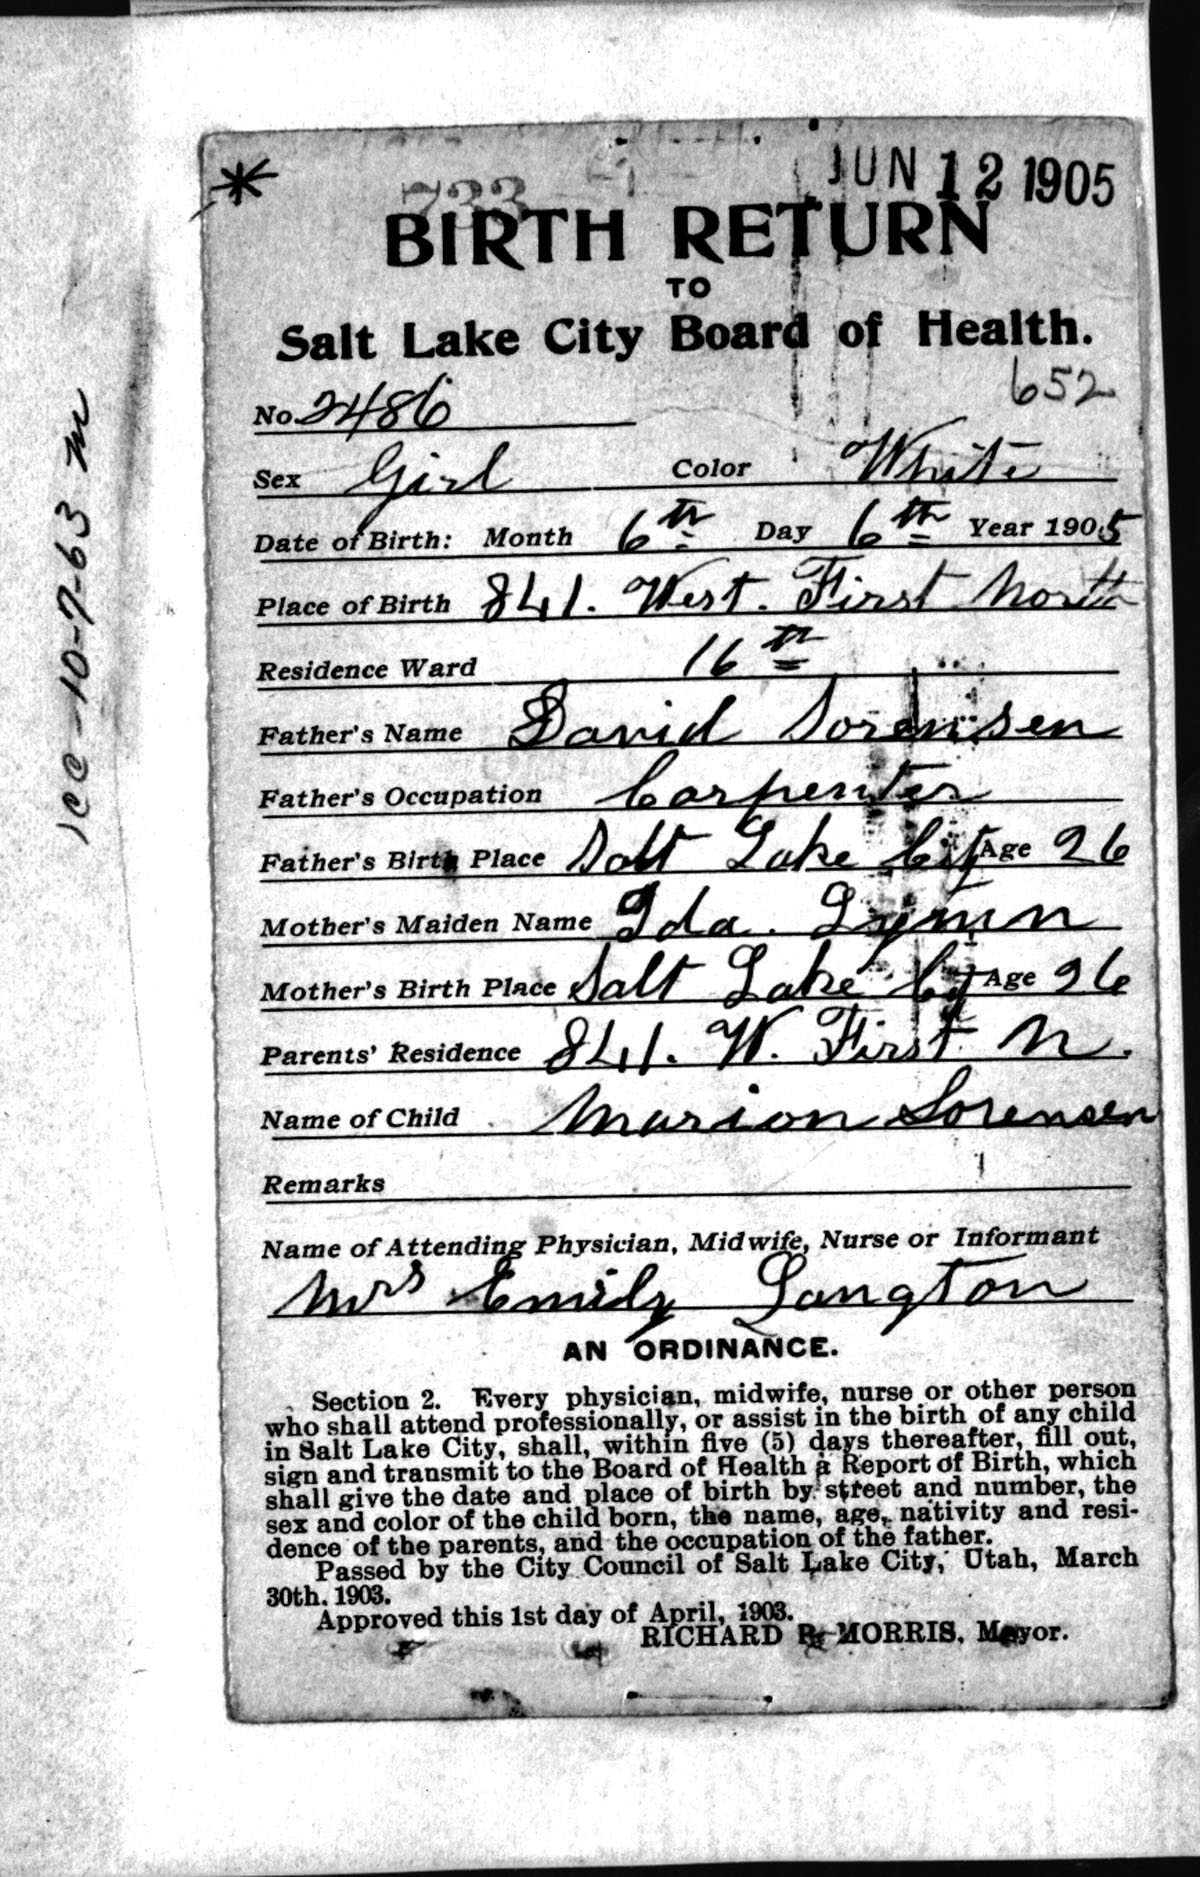 JUN 12 1905
733
BIRTH RETURN
TO
Salt Lake City Board of Health.
652
No. 2486
Sex Girl Color White
Date of Birth: Month 6th Day 6th Year 1905
Place of Birth 841. West. First North
Residence Ward 16th
Father's Name David Sorensen
Father's Occupation Carpenter
Father's Birth Place Salt Lake City Age 26
Mother's Maiden Name Ida.
Mother's Birth Place Salt Lake Cy Age 26
Parents' Residence 841. W. First N.
Name of Child Marion Sorensen
Remarks
Name of Attending Physician, Midwife, Nurse or Informant
Mrs Emily Langton
AN ORDINANCE.
Section 2. Every physician, midwife, nurse or other person
who shall attend professionally, or assist in the birth of any child
in Salt Lake City, shall, within five (5) days thereafter, fill out,
sign and transmit to the Board of Health a Report of Birth, which
shall give the date and place of birth by street and number, the
sex and color of the child born, the name, age, nativity and resi-
dence of the parents, and the occupation of the father.
Passed by the City Council of Salt Lake City, Utah, March
30th. 1903.
Approved this 1st day of April, 1903.
RICHARD P. MORRIS, Mayor.
1cc-10-7-63 m